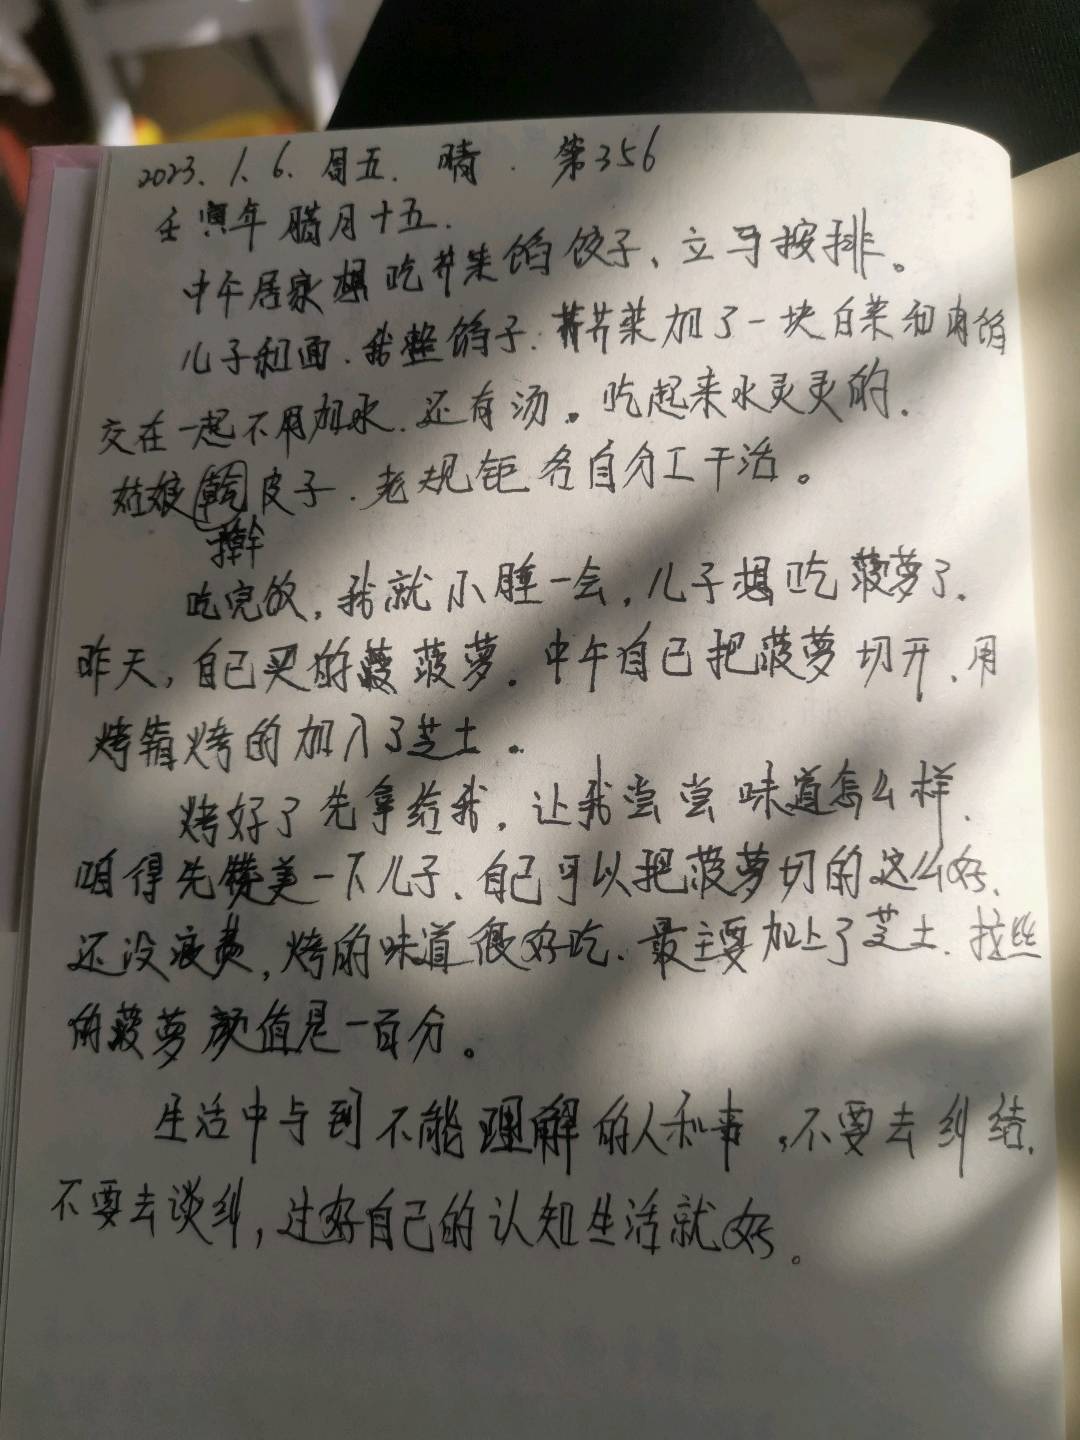 2023.1.6.周五.晴.第356
壬寅年腊月十五.
中午居家想吃芥菜馅饺子、立马按排。
儿子和面.我整馅子.芥菜加了一块白菜和肉馅
交在一起不用加水.还有汤。吃起来水灵灵的.
姑娘皮子.老规钜各自分工干活。
擀
吃完饭,我就小睡一会,儿子想吃菠萝了.
昨天,自己买的菠萝.中午自己把菠萝切开、用
烤箱烤的加入了芝士。
烤好了先拿给我,让我尝尝味道怎么样.
咱得先赞美一下儿子、自己可以把菠萝切的这么好、
还没浪费,烤的味道很好吃.最主要加上了芝士.拉丝
的菠萝颜值是一百分。
生活中与到不能理解的人和事,不要去纠结.
不要去谈纠,过好自己的认知生活就好。